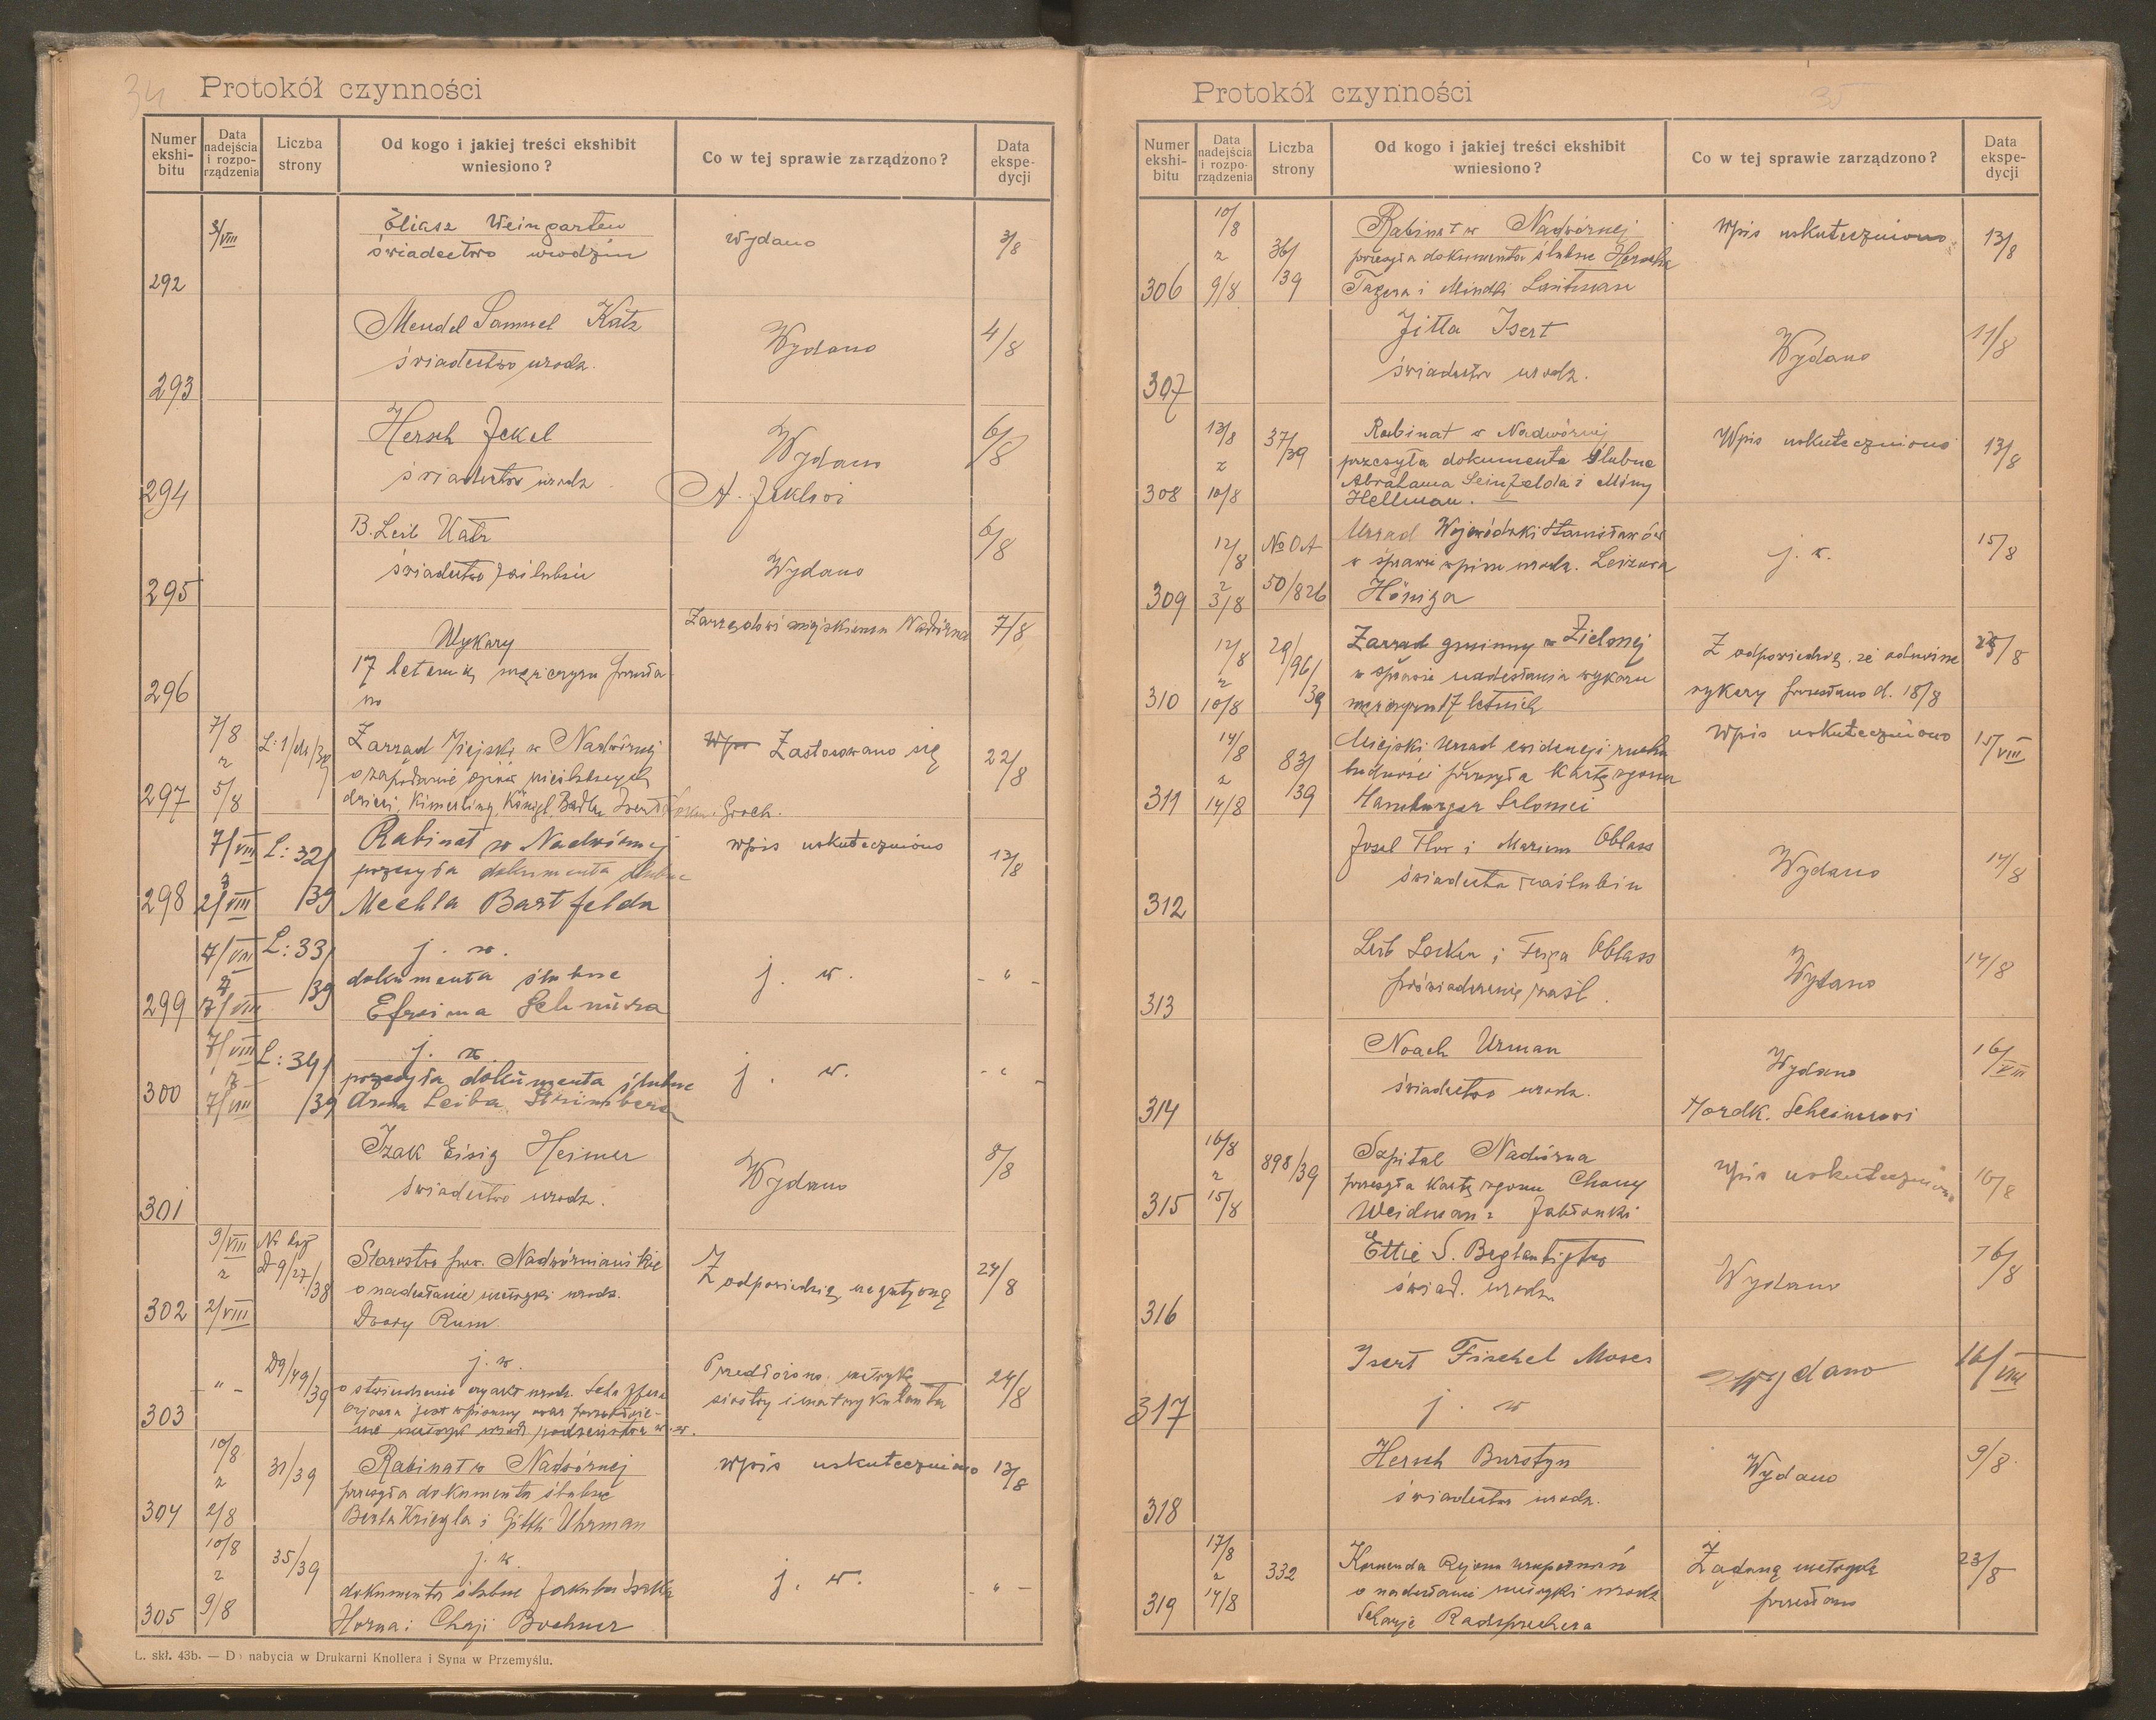 34
Protokół czynności
Numer ekshi-bitu
Data nadejścia i rozpo-rządzenia
Liczba strony
Od kogo i jakiej treści ekshibit wniesiono?
Co w tej sprawie zarządzono?
Data ekspe-dycji
292 3/VIII Eliasz Weingarten wydano 3/8
świadectwo urodzin
293 Mendel Samuel Katz Wydano 4/8
świadectwo urodz.
294 Hersch Jekel Wydano 6/8
świadectwo urodz. A. Jeklowi
295 B. Leib Katz 6/8
świadectwo zaślubin Wydano
296 Wykazy Zarządowi miejskiemu Nadwórna 7/8
17 letnich mężczyzn
297 7/8 z 5/8 Zarząd Miejski w Nadwórnej Zastosowano się 22/8
dzieci, Kimerling, Königl,
298 7/VIII z 2/VIII L: 32/39 Rabinat w Nadwórnej wpis uskuteczniono 13/8
przesyła dokumenta ślubne
Mechla Bartfelda
299 7/VIII z 7/VIII L: 33/39 j. w. j. w. - " -
dokumenta ślubne
Efroima Schnitza
300 7/VIII z 7/VIII L: 34/39 j. w. j. w. - " -
przesyła dokumenta ślubne
Arona Leiba
301 Izak Eisig Heimer Wydano 8/8
świadectwo urodz.
302 9/VIII z 2/VIII D 9/27/38 Starostwo pow. Nadwórniańskie Z odpowiedzią negatywną 24/8
o nadesłanie metryki urodz.
Dwory Rum.
303 - " - D9/49/39 j. w. Przedłożono metrykę 24/8
siostry i matrykulanta
304 10/8 z 2/8 31/39 Rabinat w Nadwórnej wpis uskuteczniono 13/8
przesyła dokumenta ślubne
Berla Kriegla i Gittli Uhrman
305 10/8 z 9/8 35/39 j. w. j. w. - " -
dokumenta ślubne Jakuba
Horna i Chaji Bochner
L. skł. 43b. — Do nabycia w Drukarni Knollera i Syna w Przemyślu.
Protokół czynności
35
Numer ekshi-bitu
Data nadejścia i rozpo-rządzenia
Liczba strony
Od kogo i jakiej treści ekshibit wniesiono?
Co w tej sprawie zarządzono?
Data ekspe-dycji
306 10/8 z 9/8 36/39 Rabinat w Nadwórnej Wpis uskuteczniono 13/8
przesyła dokumenta ślubne Herscha
Tagera i Mindli
307 Jitta Isert Wydano 11/8
świadectwo urodz.
308 13/8 z 10/8 37/39 Rabinat w Nadwórnej Wpis uskuteczniono 13/8
przesyła dokumenta ślubne
Abrahama i Miny
Hellman. —
309 12/8 z 3/8 No OA 50/826 Urząd Wojewódzki Stanisławów j. w. 15/8
w sprawie wpisu urodz. Leizora
Höniga
310 12/8 z 10/8 29/96/39 Zarząd gminny w Zielonej Z odpowiedzią, że odnośne 23/8
w sprawie nadesłania wykazu wykazy przesłano d. 18/8
mężczyzn 17 letnich
311 14/8 z 14/8 83/39 Miejski Urząd ewidencji ruchu Wpis uskuteczniono 15/VIII
ludności przesyła kartę zgonu
Hamburger Salomei
312 Josel Flor i Mariem Oblass Wydano 14/8
świadectwa zaślubin
313 Leib i Feiga Oblass Wydano 14/8
poświadczenie zaśl.
314 Noach Urman Wydano 16/VIII
świadectwo urodz. Mordk. Scheinerowi
315 16/8 z 15/8 898/39 Szpital Nadwórna wpis uskuteczniono 16/8
przesyła kartę zgonu Chany
Weidman z Jabłonki
316 Ettie S. Wydano 16/8
świad. urodz.
317 Isert Fischel Moses Wydano 16/VIII
j. w
318 Hersch Burstyn Wydano 9/8
świadectwo urodz.
319 17/8 z 14/8 332 Komenda Rejonu uzupełnień Żądaną metrykę 23/8
o nadesłanie metryki urodz przesłano
Scharje Radsprechera